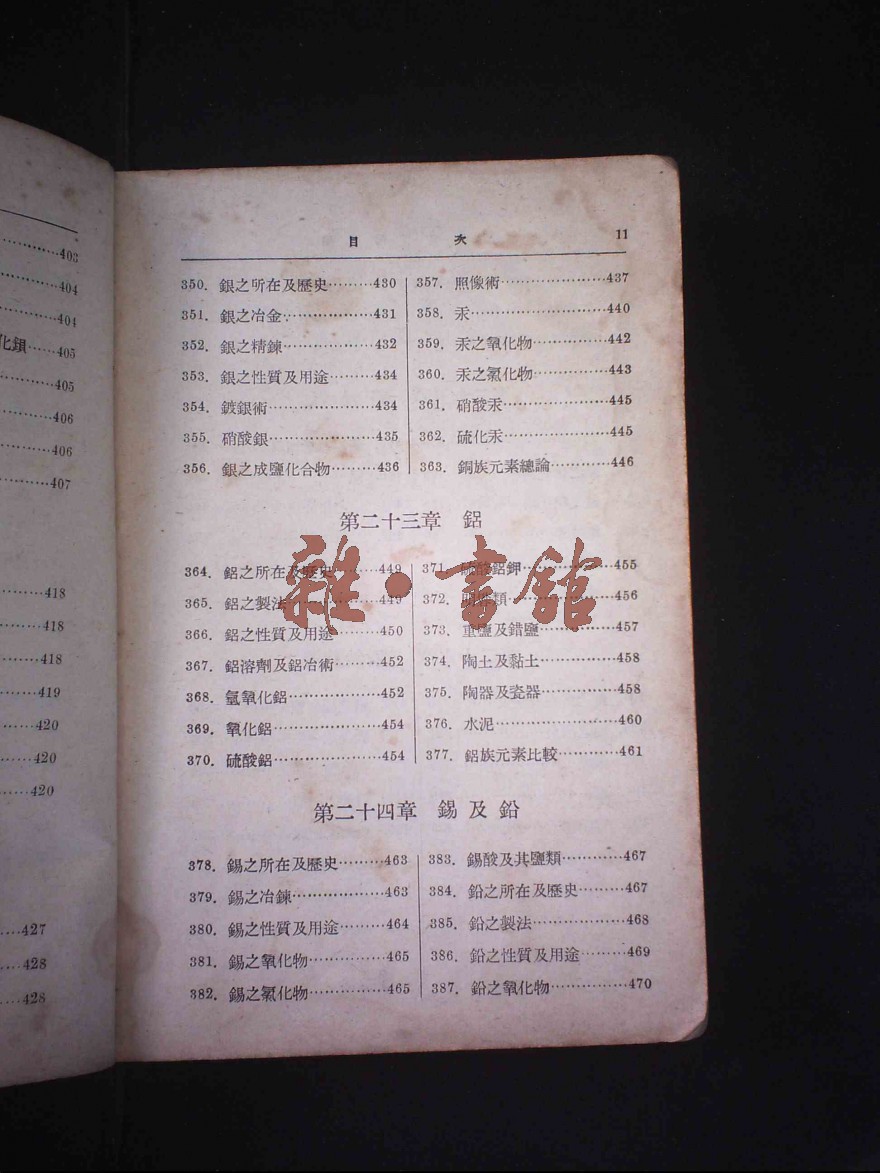 403
404
404
化鋇……405
405
406
406
407
418
418
418
419
420
420
420
427
428
428
目 次 11
350. 銀之所在及歷史………430
351. 銀之冶金………………431
352. 銀之精鍊………………432
353. 銀之性質及用途………434
354. 鍍銀術…………………434
355. 硝酸銀…………………435
356. 銀之成鹽化合物………436
357. 照像術…………………437
358. 汞………………………440
359. 汞之氧化物……………442
360. 汞之氯化物……………443
361. 硝酸汞…………………445
362. 硫化汞…………………445
363. 銅族元素總論…………446
第二十三章 鋁
364. 鋁之所在及歷史………449
365. 鋁之製法………………449
366. 鋁之性質及用途………450
367. 鋁溶劑及鋁冶術………452
368. 氫氧化鋁………………452
369. 氧化鋁…………………454
370. 硫酸鋁…………………454
371. 硫酸鋁鉀………………455
372. 明礬類…………………456
373. 重鹽及錯鹽……………457
374. 陶土及黏土……………458
375. 陶器及瓷器……………458
376. 水泥……………………460
377. 鋁族元素比較…………461
第二十四章 錫及鉛
378. 錫之所在及歷史………463
379. 錫之冶鍊………………463
380. 錫之性質及用途………464
381. 錫之氧化物……………465
382. 錫之氯化物……………465
383. 錫酸及其鹽類…………467
384. 鉛之所在及歷史………467
385. 鉛之製法………………468
386. 鉛之性質及用途………469
387. 鉛之氧化物……………470
雜·書館